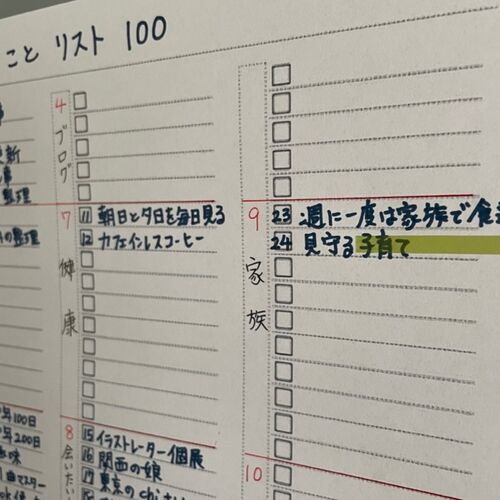 こと リスト 100
更新
整理
の整理
100日
200日
4 ブログ
7 健康
11 朝日と夕日を毎日見る
12 カフェインレスコーヒー
8 会いたい
15 イラストレーター個展
16 関西の娘
17 東京の
9 家族
23 週に一度は家族で食
24 見守る子育て
10